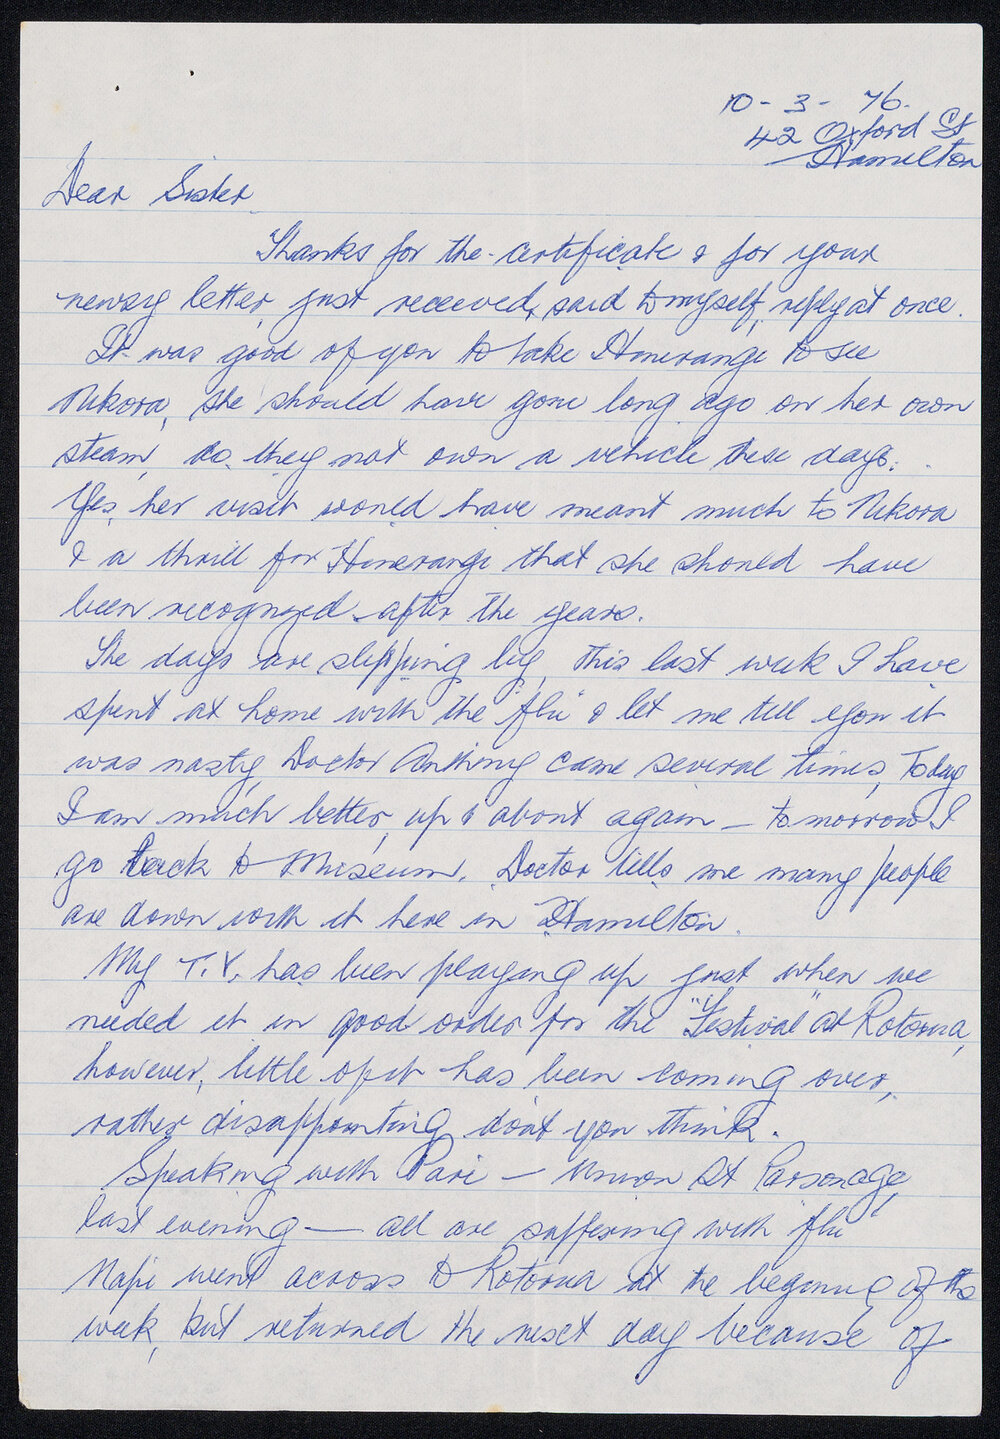 10 - 3 - 76.
42 Oxford St
Hamilton
Dear Sister
Thanks for the certificate & for your
newsy letter, just received, said to myself, reply at once.
It was good of you to take Hinerangi to see
Nikora, she should have gone long ago on her own
steam, do they not own a vehicle these days.
Yes, her visit would have meant much to Nikora
& a thrill for Hinerangi that she should have
been recognized after the years.
The days are slipping by, this last week I have
spent at home with the 'flu' & let me tell you it
was nasty, Doctor came several times, Today
I am much better, up & about again – tomorrow I
go back to Museum. Doctor tells me many people
are down with it here in Hamilton.
My T.V. has been playing up just when we
needed it in good order for the "Festival" at Rotorua,
however, little of it has been coming over,
rather disappointing don't you think.
Speaking with Pare – Union St Parsonage
last evening — all are suffering with 'flu'
Napi went across to Rotorua at the begining of the
week, but returned the next day because of